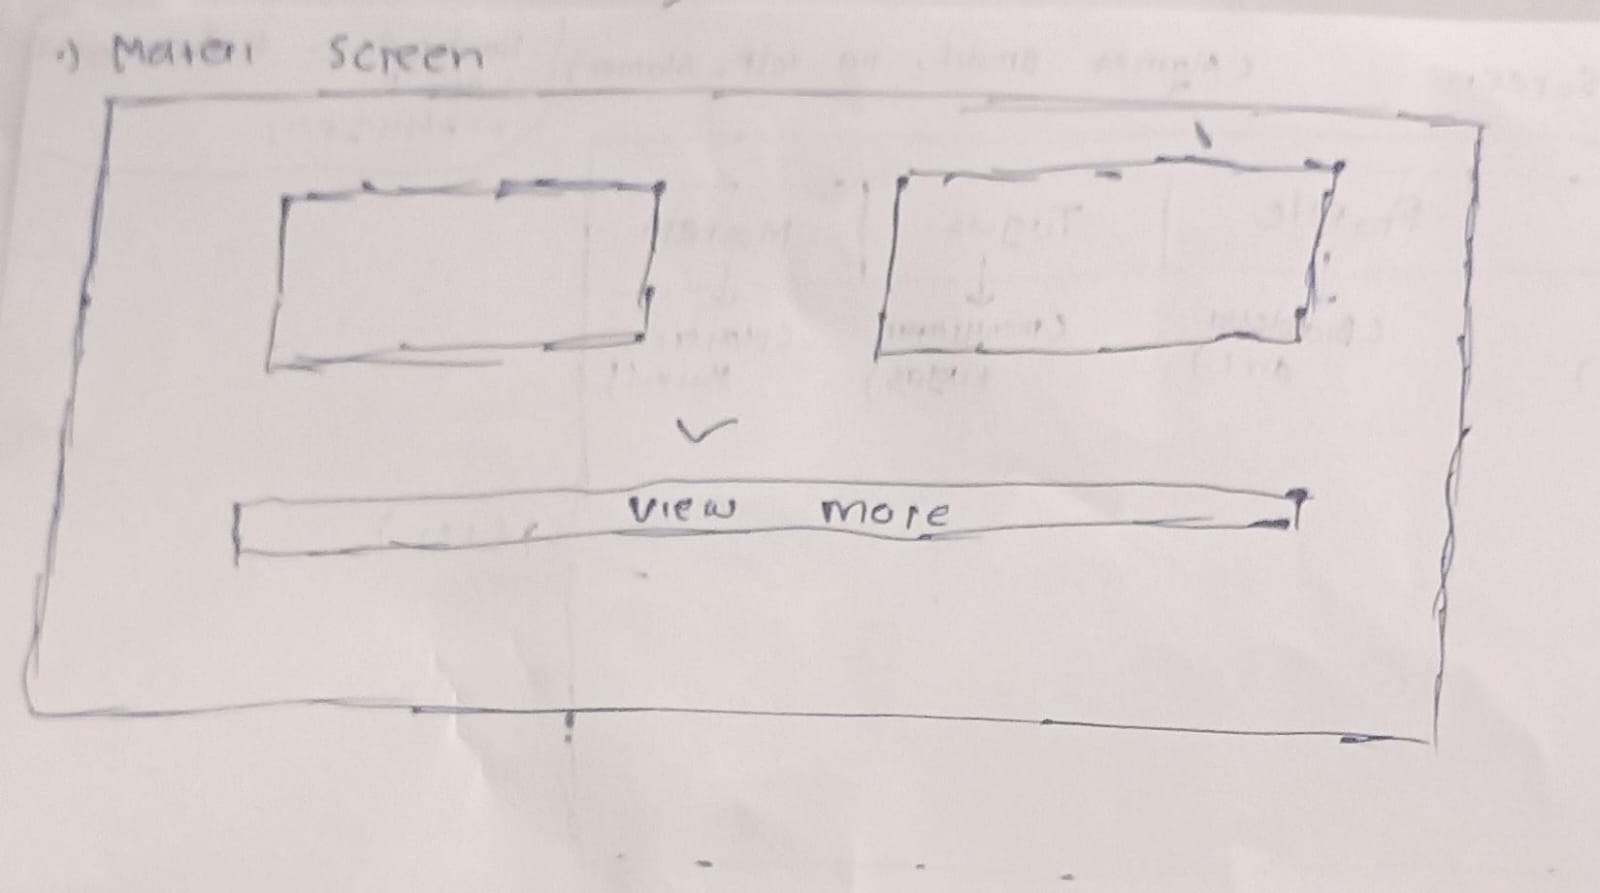 •) Materi Screen
View more